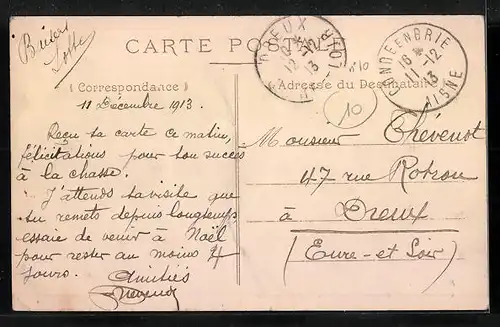 Baisers
CARTE POSTALE
DREUX
12-12
13
CONDÉ-EN-BRIE
16 *
11-12
13
AISNE
(Correspondance)
Adresse du Destinataire
10
11 Décembre 1913.
Reçu ta carte ce matin,
félicitations pour ton succès
à la chasse.
J'attends ta visite que
tu remets depuis longtemps
essaie de venir à Noël
pour rester au moins 4
jours.
Amitiés
Monsieur Thévenot
47 rue Rotrou
à Dreux
(Eure-et-Loir)